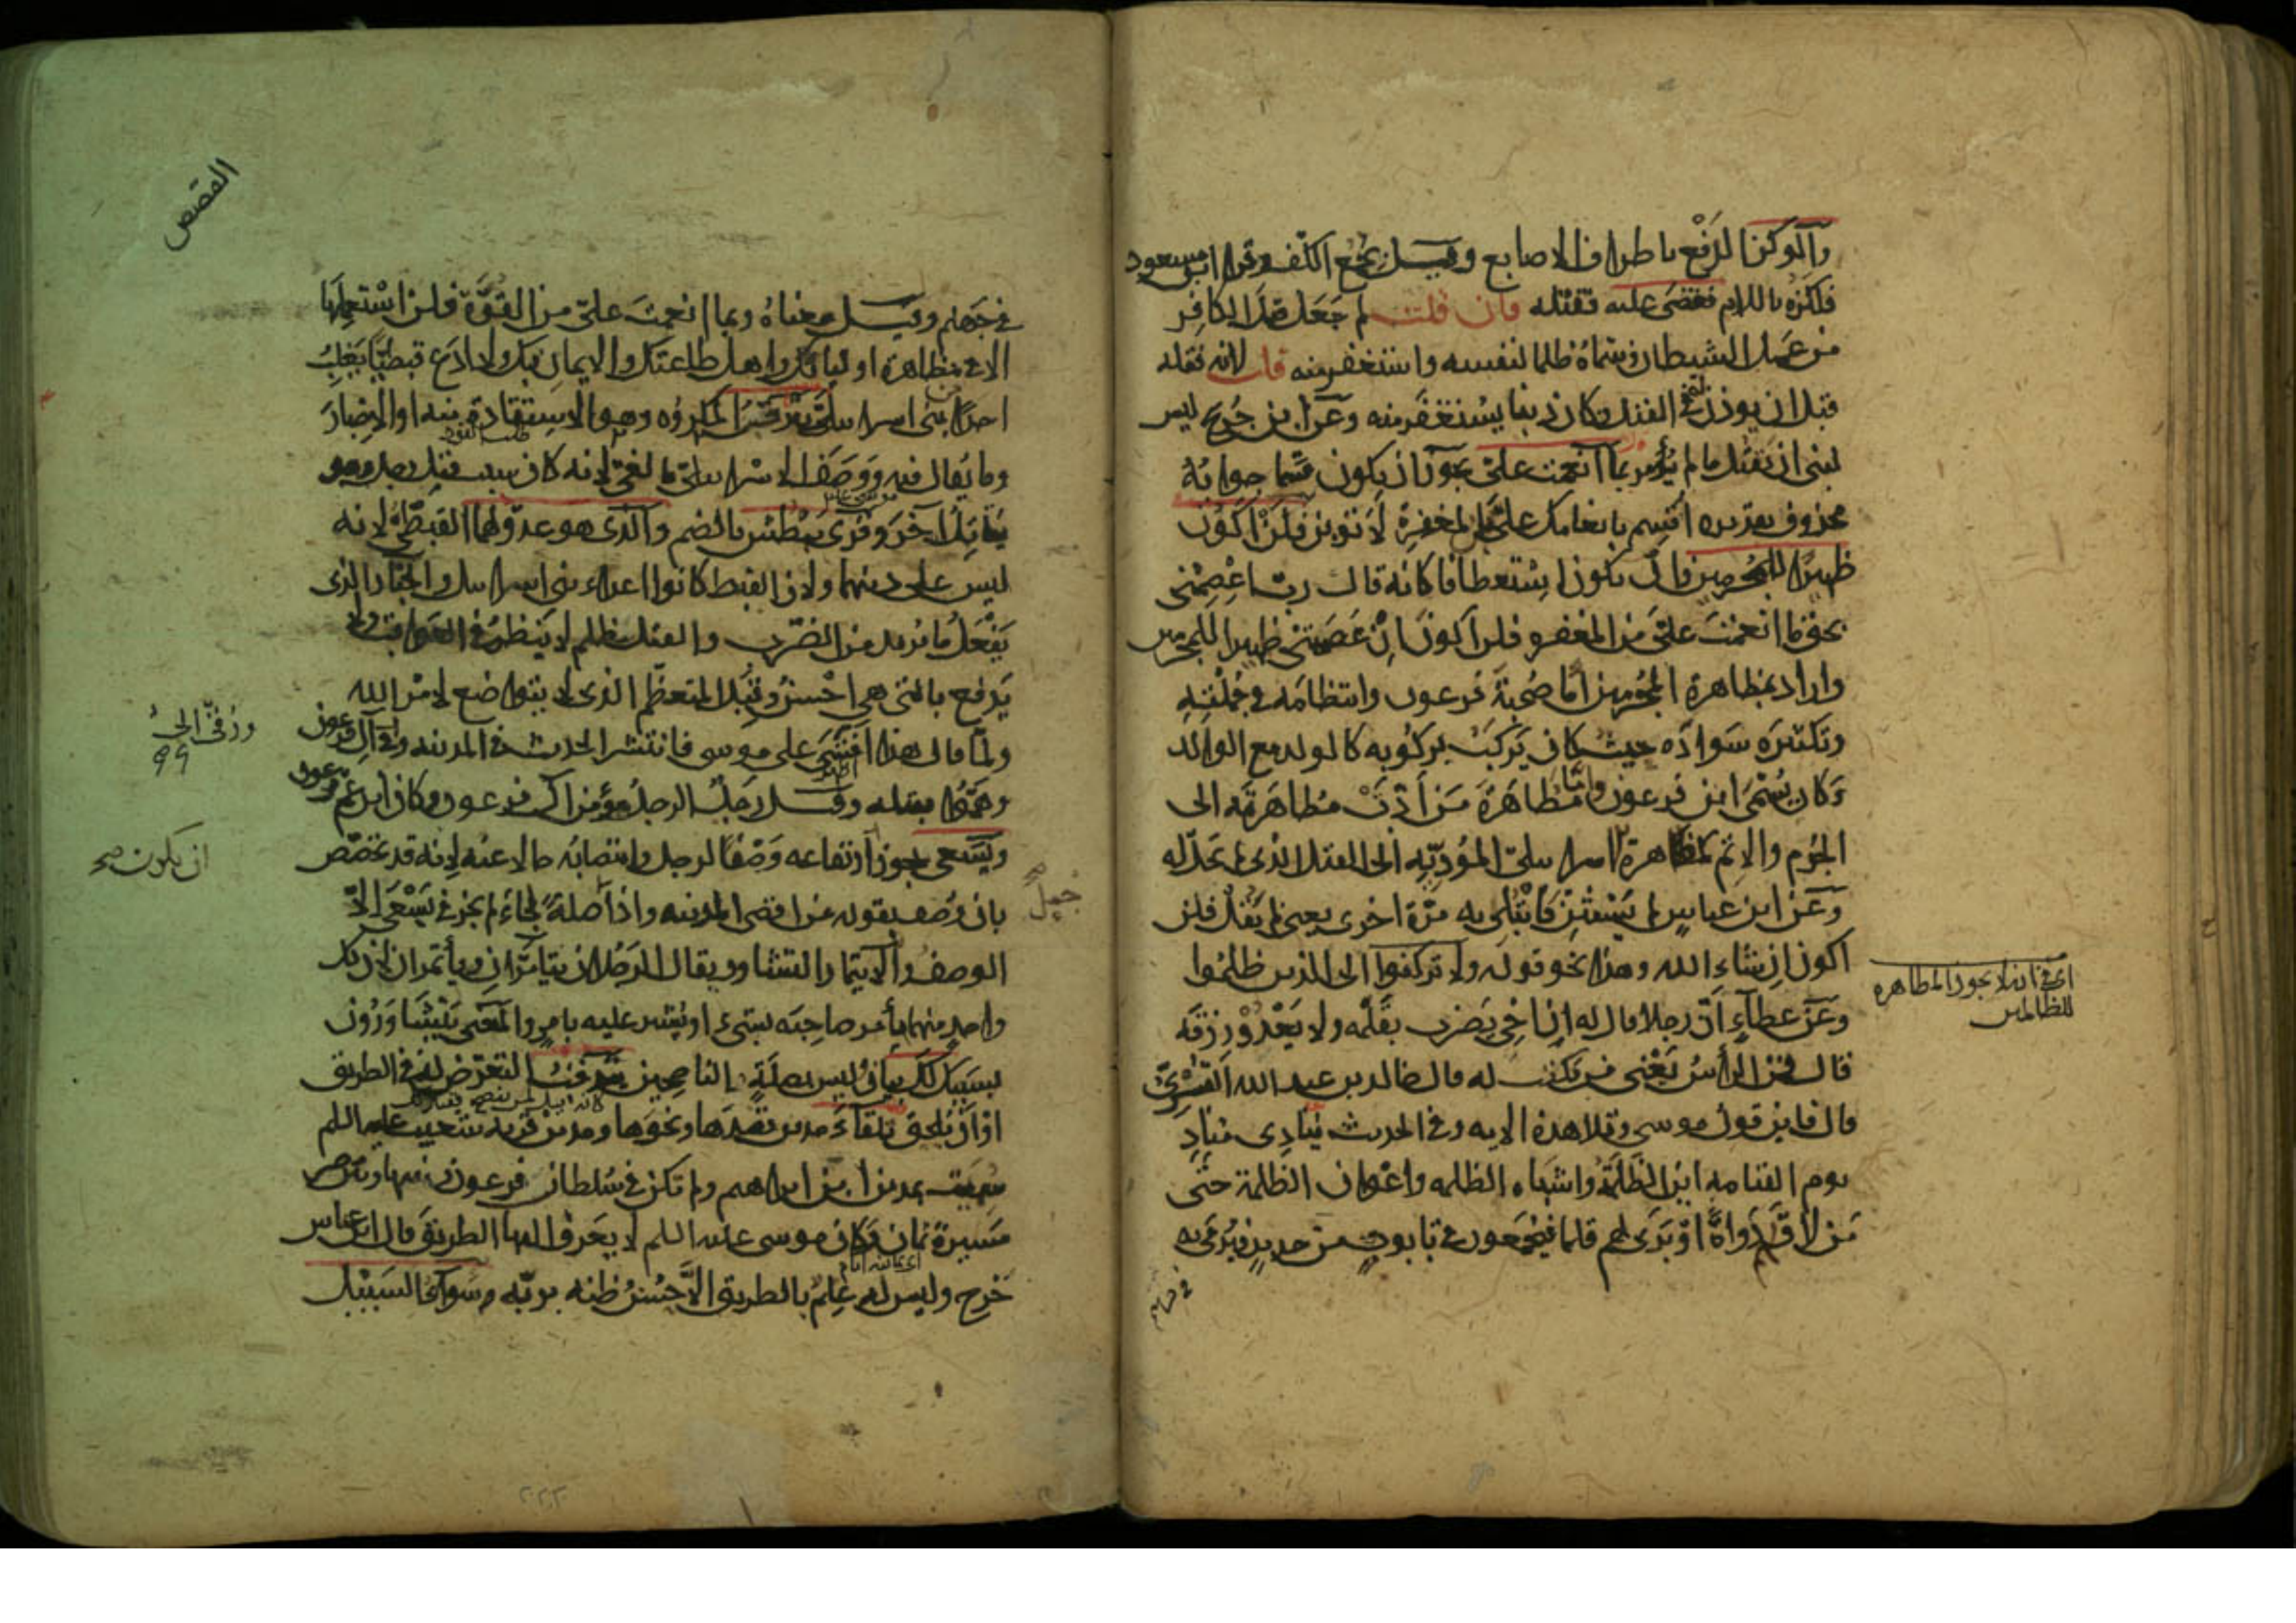 والوكز الدفع باطراف الاصابع وقيل بجمع الكف وقرا ابن مسعود
فلكزه باللام فقضى عليه فقتله فان قلت لم جعل قتل الكافر
من عمل الشيطان وسماه ظلما لنفسه واستغفر منه قلت لانه قتله
قبل ان يوذن له في القتل فكان ذنبا يستغفر منه وعن ابن جريج ليس
لنبي ان يقتل ما لم يؤمر بما انعمت علي يجوز ان يكون قسما جوابه
محذوف تقديره اقسم بانعامك علي بالمغفرة لاتوبن فلن اكون
ظهيرا للمجرمين وان يكون استعطافا كانه قال رب اعصمني
بحق ما انعمت علي من المغفره فلن اكون ان عصمتني ظهيرا للمجرمين
واراد بمظاهرة المجرمين اما صحبة فرعون وانتظامه في جملته
وتكثيره سواده حيث كان يركب بركوبه كالولد مع الوالد
وكان يسمى ابن فرعون واما مظاهرة من ادت مظاهرته الى
الجرم والاثم كمظاهرة الاسرايلي المؤدية الى القتل الذي لم يحل له
وعن ابن عباس لم يستثن فابتلي به مرة اخرى يعني لم يقل فلن
اكون ان شاء الله وهذا نحو قوله ولا تركنوا الى الذين ظلموا
وعن عطاء ان رجلا قال له ان اخي يضرب بقلمه ولا يعدو رزقه
قال فمن الراس يعني من يكتب له قال خالد بن عبد الله القسري
قال فاين قول موسى وتلا هذه الايه وفي الحديث ينادي مناد
يوم القيامه اين الظلمة واشباه الظلمه واعوان الظلمة حتى
من لاق لهم دواة او برى لهم قلما فيجمعون في تابوت من حديد فيرمى به
في جهنم
اي في انه لا يجوز المظاهره
للظالمين
القصص
في جهنم وقيل معناه وبما انعمت علي من القوة فلن استعملها
الا في مظاهرة اوليائك واهل طاعتك والايمان بك ولا ادع قبطيا يغلب
احدا من بني اسرايل يترقب المكروه وهو الاستقادة منه او الاخبار
طلب القود
وما يقال فيه ووصف الاسرايلي بالغي لانه كان سبب قتل رجل وهو
يقاتل آخر وقرئ يبطش بالضم والذي هو عدو لهما القبطي لانه
ليس على دينهما ولان القبط كانوا اعداء بني اسرايل والجبار الذي
يفعل ما يريد من الضرب والقتل بظلم لا ينظر في العواقب ولا
يدفع بالتي هي احسن وقيل المتعظم الذي لا يتواضع لامر الله
ولما قال هذا افشي على موسى فانتشر الحديث في المدينه ورقي الى آل فرعون
وهموا بقتله وقيل رجل الرجل مؤمن آل فرعون وكان ابن عم فرعون
ويسعى يجوز ارتفاعه وصفا لرجل وانتصابه حالا عنه لانه قد تخصص
ان يكون صح
بان وصف بقوله من اقصى المدينه واذا جعل صلة لجاء لم يجز في يسعى الا
الوصف والايتمار التشاور يقال الرجلان يتآمران ويأتمران لان كل
واحد منهما يأمر صاحبه بشيء او يشير عليه بامر والمعنى يتشاورون
بسببك لك بيان وليس بصلة الناصحين يترقب التعرض له في الطريق
او ان يلحق تلقاء مدين قصدها ونحوها ومدين قرية شعيب عليه السلم
سميت بمدين ابن ابراهيم ولم تكن في سلطان فرعون بينها وبين مصر
مسيرة ثمان وكان موسى عليه السلم لا يعرف اليها الطريق قال ابن عباس
اي ثمانيه ايام
خرج وليس له علم بالطريق الا حسن ظنه بربه وسواء السبيل